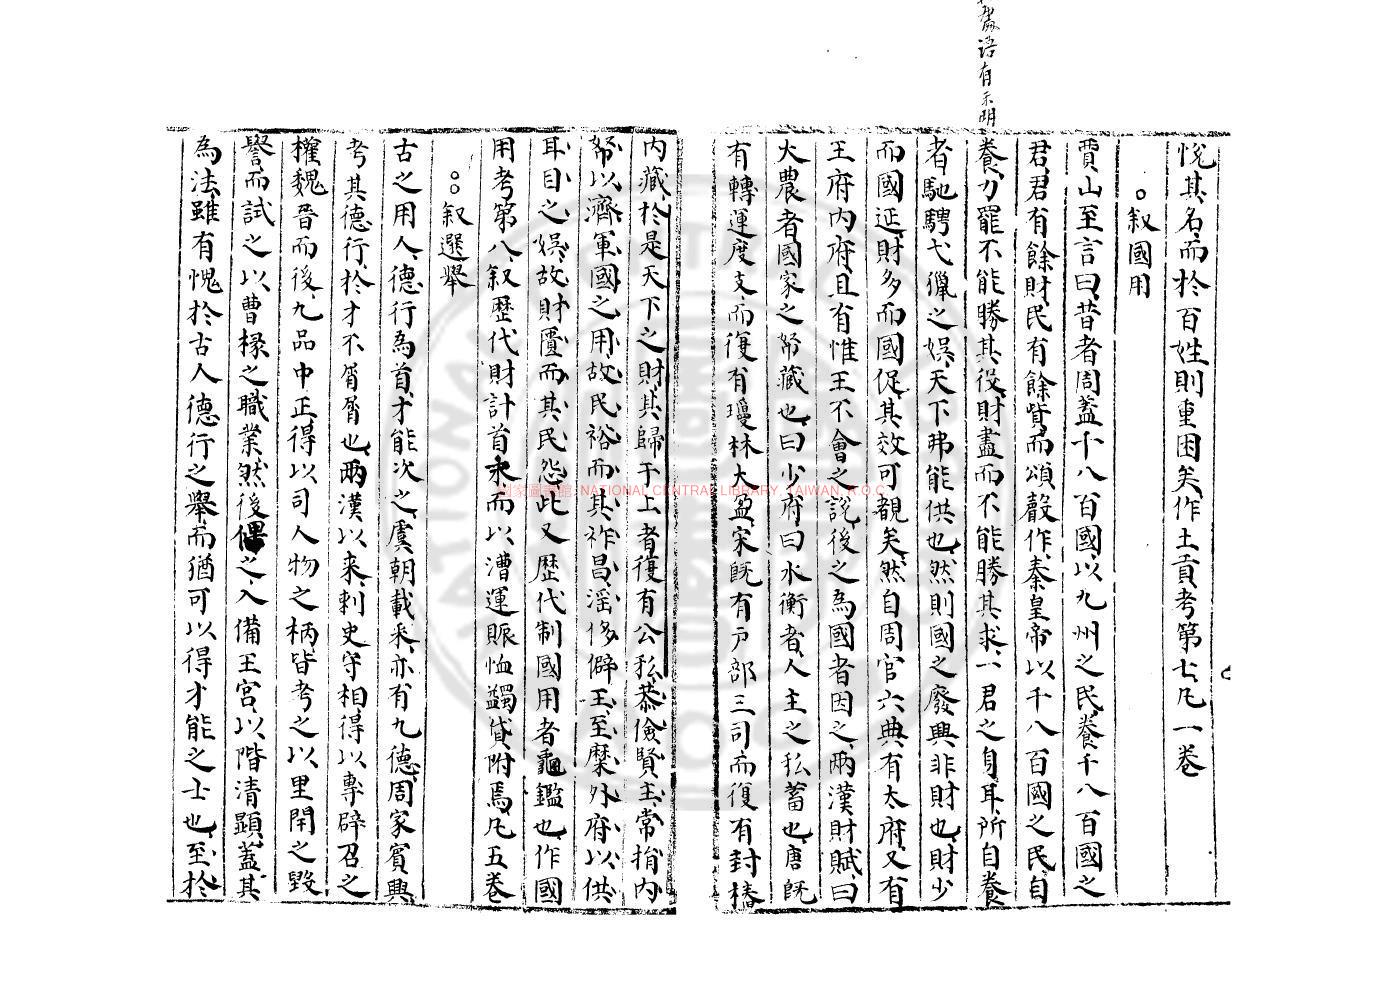 嚴語有示明
悅其名而於百姓則重困矣作土貢考第七凡一卷
○叙國用
賈山至言曰昔者周蓋千八百國以九州之民養千八百國之
君君有餘財民有餘貲而頌聲作秦皇帝以千八百國之民自
養力罷不能勝其役財盡而不能勝其求一君之身耳所自養
者馳騁弋獵之娛天下弗能供也然則國之廢興非財也財少
而國延財多而國促其效可覩矣然自周官六典有太府又有
王府內府且有惟王不會之說後之為國者因之兩漢財賦曰
大農者國家之帑藏也曰少府曰水衡者人主之私蓄也唐旣
有轉運度支而復有瓊林大盈宋旣有戶部三司而復有封樁
內藏於是天下之財其歸于上者復有公私恭儉賢主常捐內
帑以濟軍國之用故民裕而其祚昌淫侈僻王至糜外府以供
耳目之娛故財匱而其民怨此又歷代制國用者龜鑑也作國
用考第八叙歷代財計首末而以漕運賑恤蠲貸附焉凡五卷
○○叙選舉
古之用人德行為首才能次之虞朝載采亦有九德周家賓興
考其德行於才不屑屑也兩漢以來刺史守相得以專辟召之
權魏晋而後九品中正得以司人物之柄皆考之以里閈之毀
譽而試之以曹掾之職業然後俾之入備王宮以階清顯蓋其
為法雖有愧於古人德行之舉而猶可以得才能之士也至於
國家圖書館 NATIONAL CENTRAL LIBRARY, TAIWAN, R.O.C.